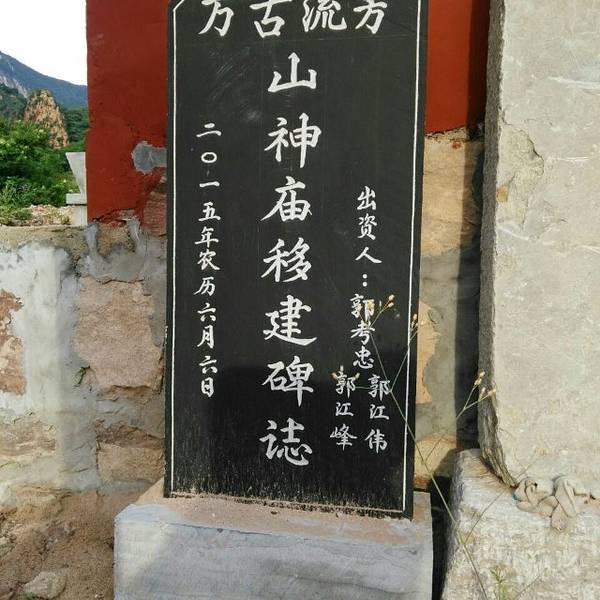 万古流芳
出资人：郭考忠
郭江伟
郭江峰
山神庙移建碑志
二〇一五年农历六月六日